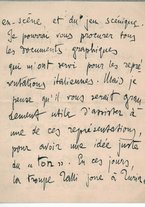 en-scène, et du jeu scénique.
Je pourrai vous procurer tous
les documents graphiques
qui m'ont servi pour les repré
sentations italiennes. Mais je
pense qu'il vous serait gran
dement utile d'arriver à
une de ces représentations,
pour avoir une idée juste
du "ton". En ces jours,
la troupe Talli joue à Turin,